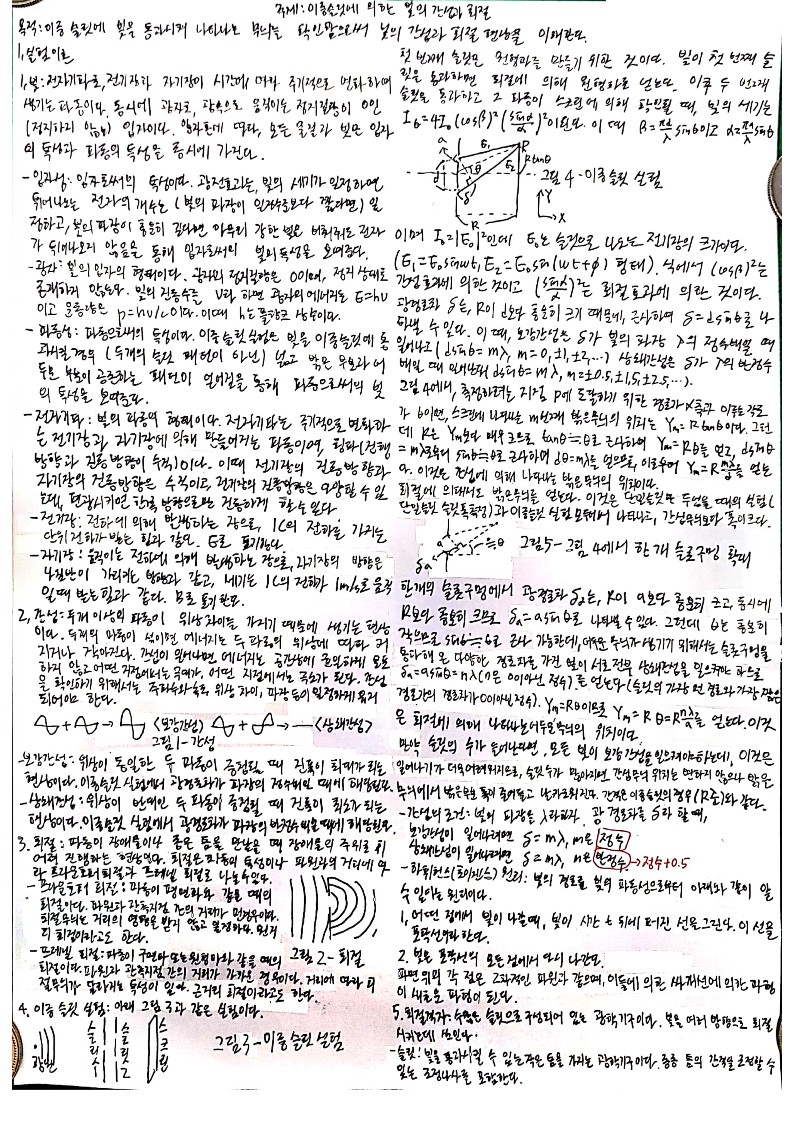 주제: 이중슬릿에 의한 빛의 간섭과 회절
목적: 이중 슬릿에 빛을 통과시켜 나타나는 무늬를 확인함으로써 빛의 간섭과 회절 현상을 이해한다.
1. 실험이론
1. 빛: 전자기파로, 전기장과 자기장이 시간에 따라 주기적으로 변화하며
생기는 파동이다. 동시에 광자로, 광속으로 움직이는 정지질량이 0인
(정지하지 않는) 입자이다. 따라, 모든 물질과 빛은 입자
의 특성과 파동의 특성을 동시에 가진다.
- 입자성: 입자로써의 특성이다. 광전효과는, 빛의 세기가 일정하면
튀어나오는 전자의 개수는 (빛의 파장이 보다 짧다면) 일
정하고, 빛의 파장이 충분히 길다면 아무리 강한 빛을 비춰줘도 전자
가 튀어나오지 않음을 통해 입자로써의 빛의 특성을 보여준다.
- 광자: 빛의 입자의 형태이다. 광자의 정지질량은 0이며, 정지 상태로
존재하지 않는다. 빛의 진동수를 ν라 하면 광자의 에너지는 E=hν
이고 운동량은 p=hν/c이다. 이때 h는 플랑크 상수이다.
- 파동성: 파동으로써의 특성이다. 이중슬릿실험은 빛을 이중슬릿에 통
과시킬 경우 (두개의 패턴이 아닌) 넓고 밝은 무늬와 어
두운 무늬가 공존하는 패턴이 얻어짐을 통해 파동으로써의 빛
의 특성을 보여준다.
- 전자기파: 빛의 파동의 형태이다. 전자기파는 주기적으로 변화하
는 전기장과 자기장에 의해 만들어지는 파동이며, 횡파(진행
방향과 진동방향이 수직)이다. 이때 전기장의 진동방향과
자기장의 진동방향은 수직이고, 전기장의 진동방향은 다양할 수 있
는데, 편광시키면 한쪽 방향으로만 진동하게 할 수 있다.
- 전기장: 전하에 의해 발생하는 장으로, 1C의 전하를 가지는
단위전하가 받는 힘과 같다. E로 표기한다.
- 자기장: 움직이는 전하에 의해 발생하는 장으로, 자기장의 방향은
나침반이 가리키는 방향과 같고, 세기는 1C의 전하가 1m/s로 움직
일때 받는 힘과 같다. B로 표기한다.
2. 간섭: 두개 이상의 파동이 위상차이를 가지기 때문에 생기는 현상
이다. 두개의 파동이 섞이면 에너지는 두 파동의 위상에 따라 커
지거나 작아진다. 간섭이 일어나면 에너지는 공간상에 균일하게 분포
하지 않고 어떤 지점에서는 극대가, 어떤 지점에서는 극소가 된다. 간섭
을 확인하기 위해서는 주파수와 속도, 위상 차이, 파장 등이 일정하게 유지
되어야 한다.
<보강간섭> <상쇄간섭>
그림 1- 간섭
- 보강간섭: 위상이 동일한 두 파동이 중첩될 때 진폭이 최대가 되는
현상이다. 이중슬릿 실험에서 광경로차가 파장의 정수배일 때에 해당된다.
- 상쇄간섭: 위상이 반대인 두 파동이 중첩될 때 진폭이 최소가 되는
현상이다. 이중슬릿 실험에서 광경로차가 파장의 반정수배일 때에 해당된다.
3. 회절: 파동이 장애물이나 좁은 틈을 만났을 때 장애물의 주위로 휘
어져 진행하는 현상이다. 회절은 파동의 특성이나 파원과의 거리에 따
라 프라운호퍼 회절과 프레넬 회절로 나눌 수 있다.
- 프라운호퍼 회절: 파동이 평면파와 같을 때의
회절이다. 파원과 관측지점 간의 거리가 먼 경우이다.
회절무늬는 거리의 영향을 받지 않고 일정하다. 원거
리 회절이라고도 한다.
그림 2- 회절
- 프레넬 회절: 파동이 구면파 또는 원형파와 같을 때의
회절이다. 파원과 관측지점 간의 거리가 가까운 경우이다. 거리에 따라 회
절무늬가 달라지는 특성이 있다. 근거리 회절이라고도 한다.
4. 이중 슬릿 실험: 아래 그림 3과 같은 실험이다.
광원
슬릿1
슬릿2
스크린
그림 3- 이중슬릿실험
첫 번째 슬릿은 원형파를 만들기 위한 것이다. 빛이 첫 번째 슬
릿을 통과하면 회절에 의해 원형파를 얻는다. 이후 두 번째
슬릿을 통과하고 그 파동이 스크린에 의해 확인될 때, 빛의 세기는
Iθ=4I₀(cosβ)²(sinα/α)²이 된다. 이 때 β=πd/λ sinθ이고 α=πa/λ sinθ
그림 4- 이중슬릿 실험
이며 I₀=|E₀|²인데 E₀는 슬릿으로 나오는 전기장의 크기이다.
(E₁=E₀sinωt, E₂=E₀sin(ωt+φ) 형태). 식에서 (cosβ)²는
간섭효과에 의한 것이고 (sinα/α)²는 회절효과에 의한 것이다.
광경로차 δ는, R이 d보다 충분히 크기 때문에, 근사하여 δ=dsinθ로 나
타낼 수 있다. 이 때, 보강간섭은 δ가 빛의 파장 λ의 정수배일 때
일어나고 (dsinθ=mλ, m=0,±1,±2,…) 상쇄간섭은 δ가 λ의 반정수
배일 때 일어난다(dsinθ=mλ, m=±0.5,±1.5,±2.5,…).
그림 4에서, 측정하려는 지점 P에 도달하기 위한 경로가 X축과 이루는 각도
가 θ이면, 스크린에 나타나는 m번째 밝은무늬의 위치는 Ym=Rtanθ이다. 그런
데 R은 Ym보다 매우 크므로 tanθ≒θ로 근사하여 Ym=Rθ를 얻고, dsinθ
=mλ로부터 sinθ≒θ로 근사하여 dθ=mλ를 얻으므로, 이로부터 Ym=R mλ/d를 얻는
다. 이것은 간섭에 의해 나타나는 밝은무늬의 위치이다.
회절에 의해서도 밝은무늬를 얻는다. 이것은 단일슬릿만 두었을 때의 실험(
단일슬릿 )과 이중슬릿 실험 모두에서 나타나고, 간섭무늬보다 폭이 크다.
그림5- 그림 4에서 한 개 슬릿구멍 확대
한개의 슬릿구멍에서 광경로차 δa는, R이 a보다 충분히 크고, 동시에
R보다 충분히 크므로 δa=asinθ로 나타낼 수 있다. 그런데 θ는 충분히
작으므로 sinθ≒θ로 근사 가능한데, 어두운 무늬가 생기기 위해서는 슬릿구멍을
통과해 온 다양한 경로차를 가진 빛이 서로 전부 상쇄간섭을 일으켜야 하므로
δa=asinθ=nλ(n은 0이 아닌 정수)를 얻는다(슬릿의 가장 먼 경로와 가장 짧은
경로간의 경로차가 0이 아닌 정수). Ym=Rθ이므로 Ym=Rθ=R nλ/a를 얻는다. 이것
은 회절에 의해 나타나는 어두운무늬의 위치이다.
만약 슬릿의 수가 늘어난다면, 모든 빛이 보강간섭을 일으켜야 하는데, 이것은
일어나기가 더욱 어려워지므로, 슬릿 수가 많아지면 간섭무늬의 위치는 변하지 않으나 밝은
무늬에서 밝은부분 폭이 줄어들고 날카로워진다. 간격은 이중슬릿의 경우(R조)와 같다.
- 간섭의 조건: 빛의 파장을 λ라 하자. 광 경로차를 δ라 할 때,
보강간섭이 일어나려면 δ=mλ, m은 정수
상쇄간섭이 일어나려면 δ=mλ, m은 반정수 → 정수+0.5
- 하위헌스(호이겐스) 원리: 빛의 경로를 빛의 파동성으로부터 아래와 같이 알
수 있다는 원리이다.
1. 어떤 점에서 빛이 나갈 때, 빛이 시간 t 뒤에 퍼진 선을 그린다. 이 선을
포락선이라 한다.
2. 빛은 포락선의 모든 점에서 다시 나간다.
파면 위의 각 점은 2차적인 파원과 같으며, 이들에 의한 포락선에 의한 파형
이 새로운 파형이 된다.
5. 회절격자: 수많은 슬릿으로 구성되어 있는 광학기구이다. 빛을 여러 방향으로 회절
시키는데 쓰인다.
- 슬릿: 빛을 통과시킬 수 있는 작은 틈을 가지는 광학기구이다. 종종 틈의 간격을 조절할 수
있는 조절나사를 포함한다.